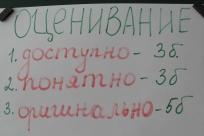 ОЦЕНИВАНИЕ
1. доступно - 3б.
2. понятно - 3б
3. оригинально - 5б